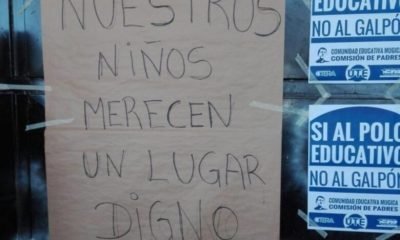 NUESTROS
NIÑOS
MERECEN
UN LUGAR
DIGNO
EDUCATIVO
NO AL GALPÓN
COMUNIDAD EDUCATIVA MUGICA
COMISIÓN DE PADRES
CTERA
UTE
SI AL POLO
EDUCATIVO
NO AL GALPÓN
COMUNIDAD EDUCATIVA MUGICA
COMISIÓN DE PADRES
CTERA
UTE